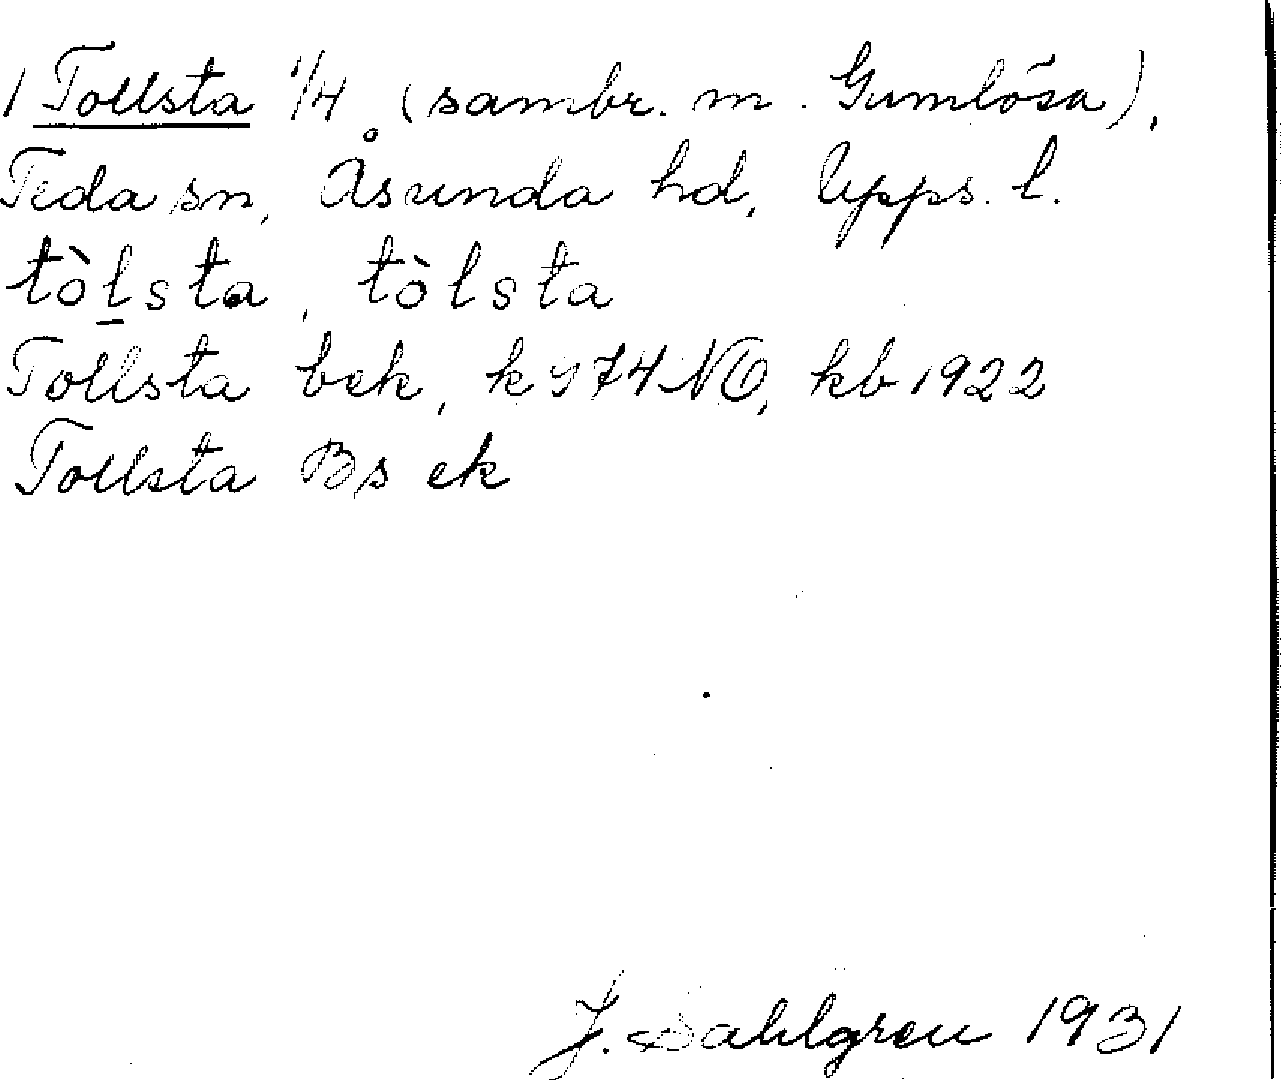 1 Tollsta 1/4 (sambr. m. Gumlösa),
Teda sn, Åsunda hd, Upps. l.
tòl̠sta, tòlsta
Tollsta bek, k 974 NO, kb 1922
Tollsta Bs ek
J. Sahlgren 1931